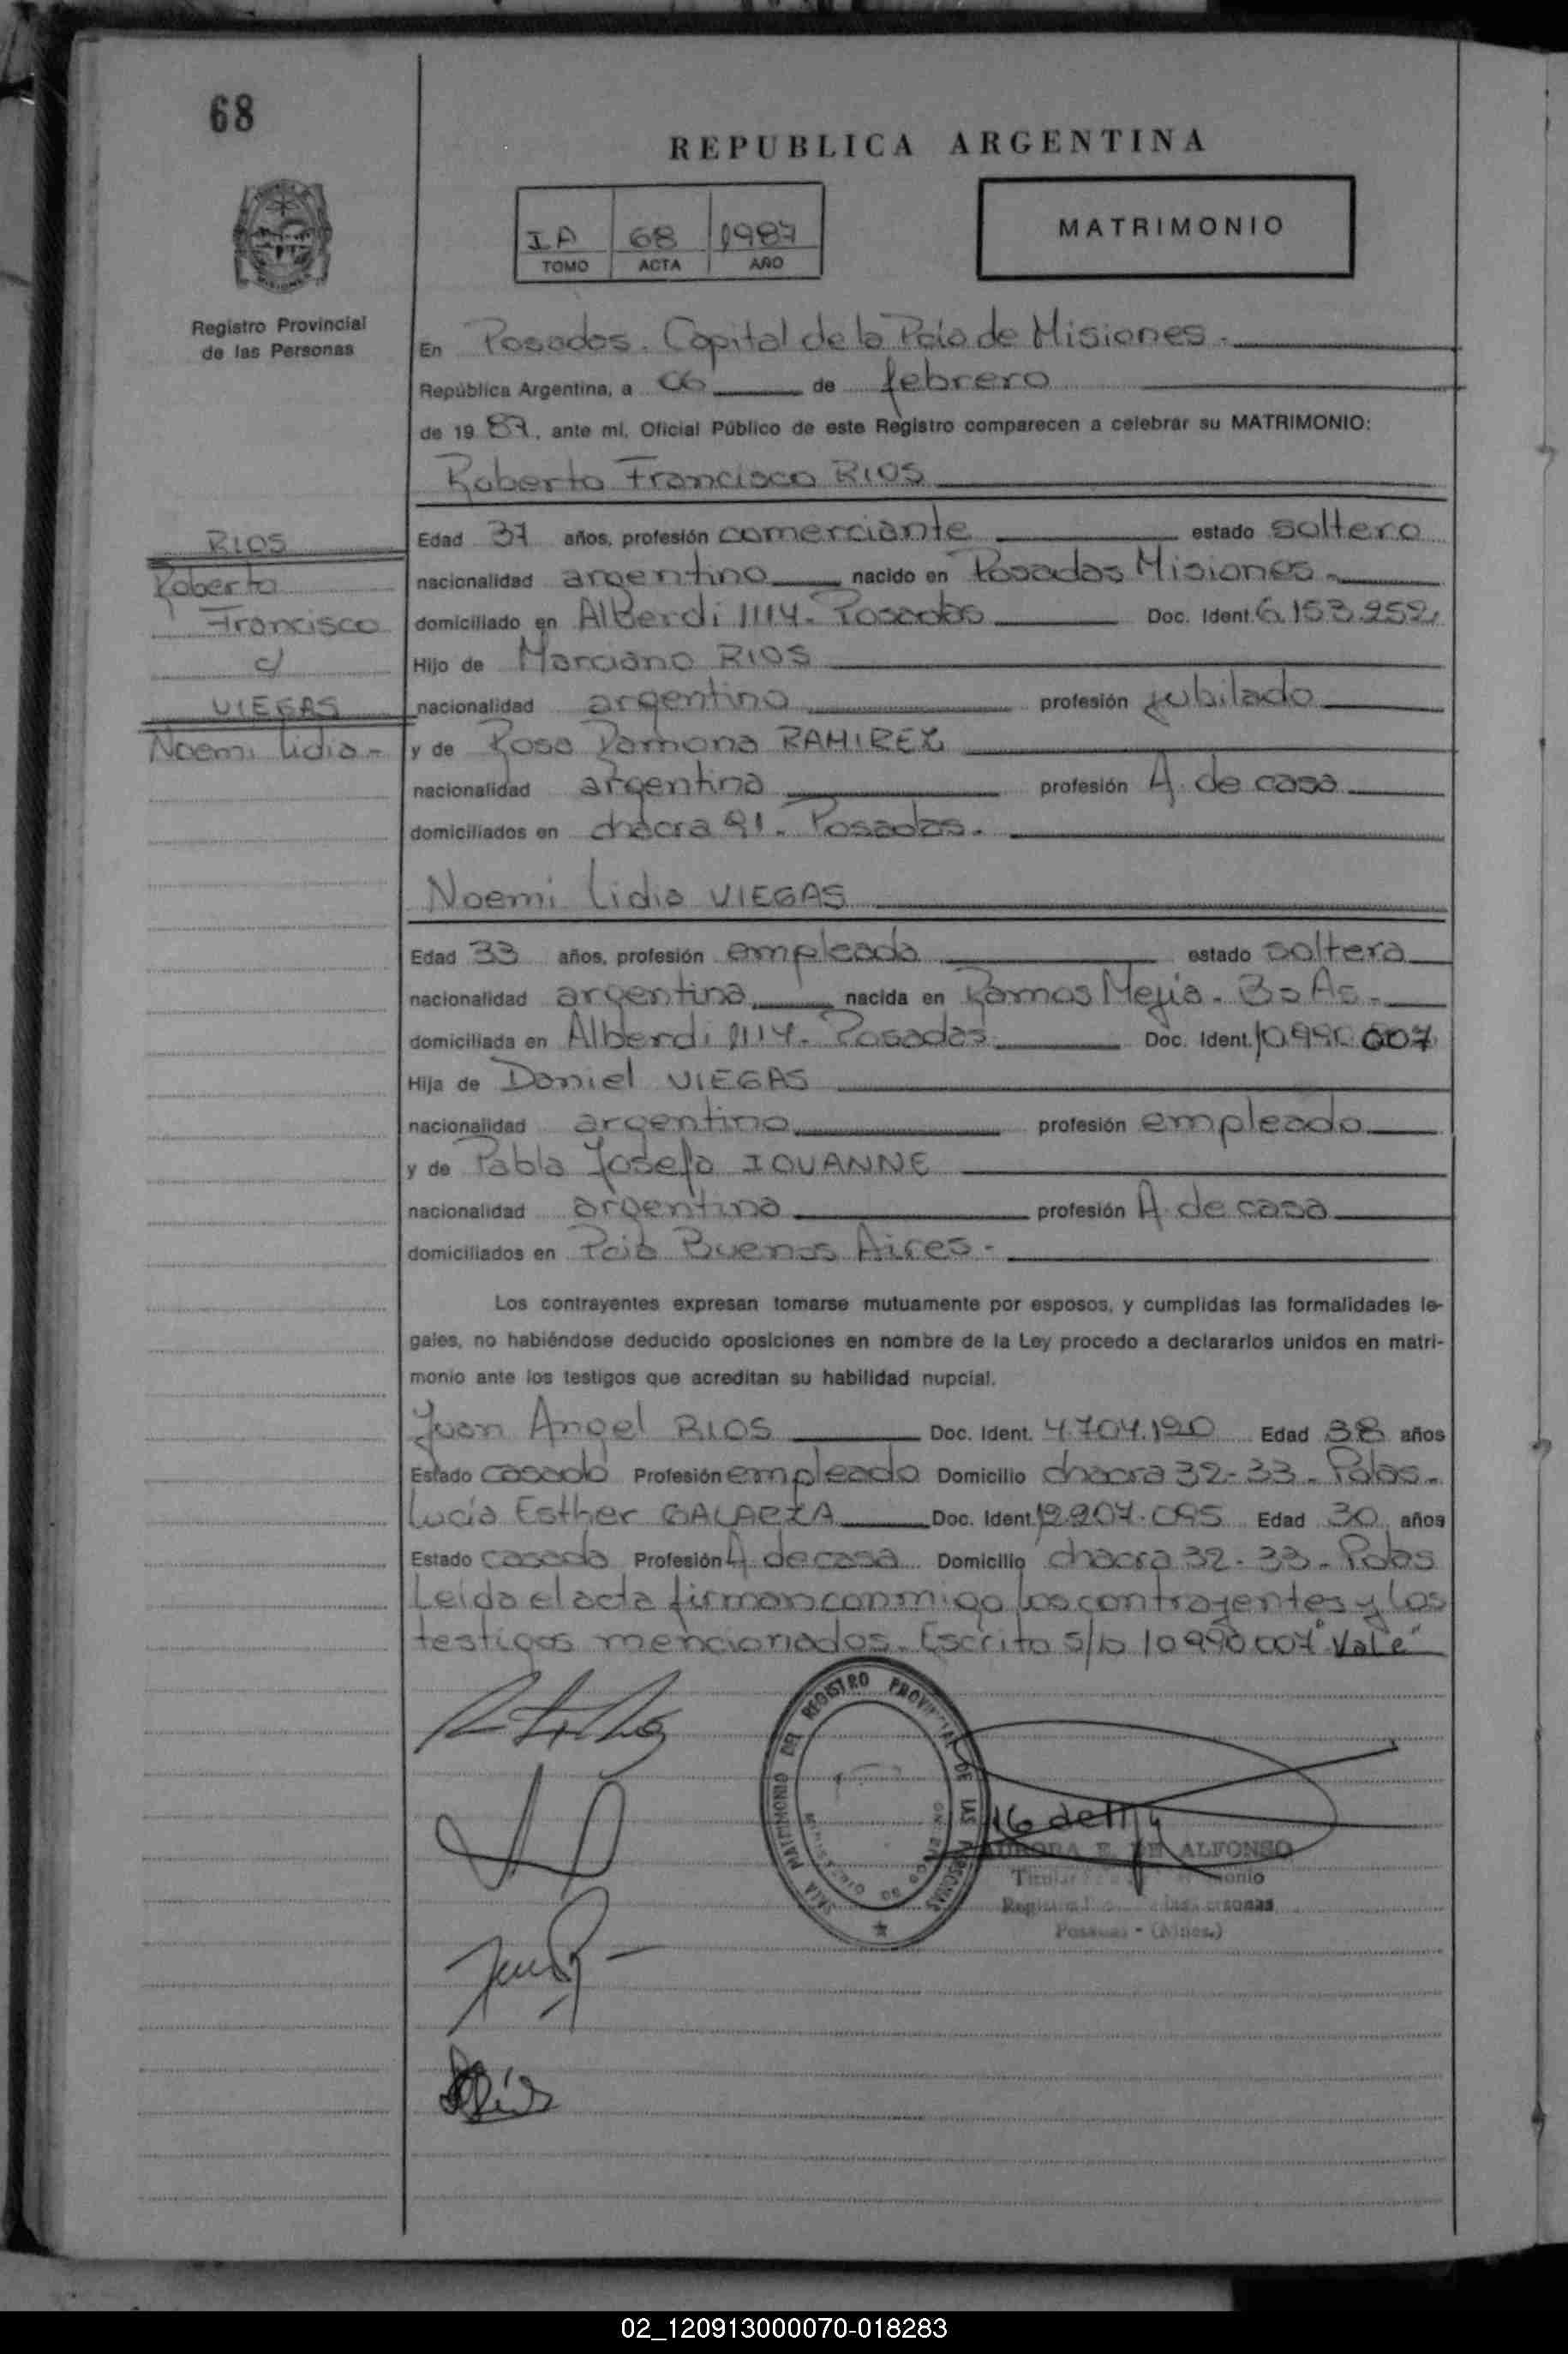 68
REPUBLICA ARGENTINA
IA 68 1987
TOMO ACTA AÑO
MATRIMONIO
Registro Provincial
de las Personas
En Posadas. Capital de la Pcia de Misiones.
República Argentina, a 06 de febrero
de 19 87, ante mi, Oficial Público de este Registro comparecen a celebrar su MATRIMONIO:
Roberto Francisco RIOS
RIOS
Roberto
Francisco
c/
VIEGAS
Noemi Lidia-
Edad 37 años, profesión comerciante estado soltero
nacionalidad argentino nacido en Posadas Misiones-
domiciliado en Alberdi 1114. Posadas Doc. Ident. 6.153.252
Hijo de Marciano RIOS
nacionalidad argentino profesión jubilado
y de Rosa Ramona RAMIREZ
nacionalidad argentina profesión A. de casa
domiciliados en chacra 91. Posadas.
Noemi Lidia VIEGAS
Edad 33 años, profesión empleada estado soltera
nacionalidad argentina nacida en Ramos Mejia. Bs As-
domiciliada en Alberdi 1114. Posadas Doc. Ident. 10.990.007
Hija de Daniel VIEGAS
nacionalidad argentino profesión empleado
y de Pabla Josefa IOVANNE
nacionalidad argentina profesión A. de casa
domiciliados en Pcia Buenos Aires-
Los contrayentes expresan tomarse mutuamente por esposos, y cumplidas las formalidades le-
gales, no habiéndose deducido oposiciones en nombre de la Ley procedo a declararlos unidos en matri-
monio ante los testigos que acreditan su habilidad nupcial.
Juan Angel RIOS Doc. Ident. 4.704.190 Edad 38 años
Estado casado Profesión empleado Domicilio chacra 32-33- Pdas-
Lucía Esther GALARZA Doc. Ident. 12.907.095 Edad 30 años
Estado casada Profesión A. de casa Domicilio chacra 32-33- Pdas
Leída el acta firman conmigo los contrayentes y los
testigos mencionados. Escrito s/b 10990007 "Vale"
SALA MATRIMONIO DEL REGISTRO PROVINCIAL DE LAS PERSONAS
AURORA E. DE ALFONSO
Titular
Posadas - (Mnes.)
02_120913000070-018283